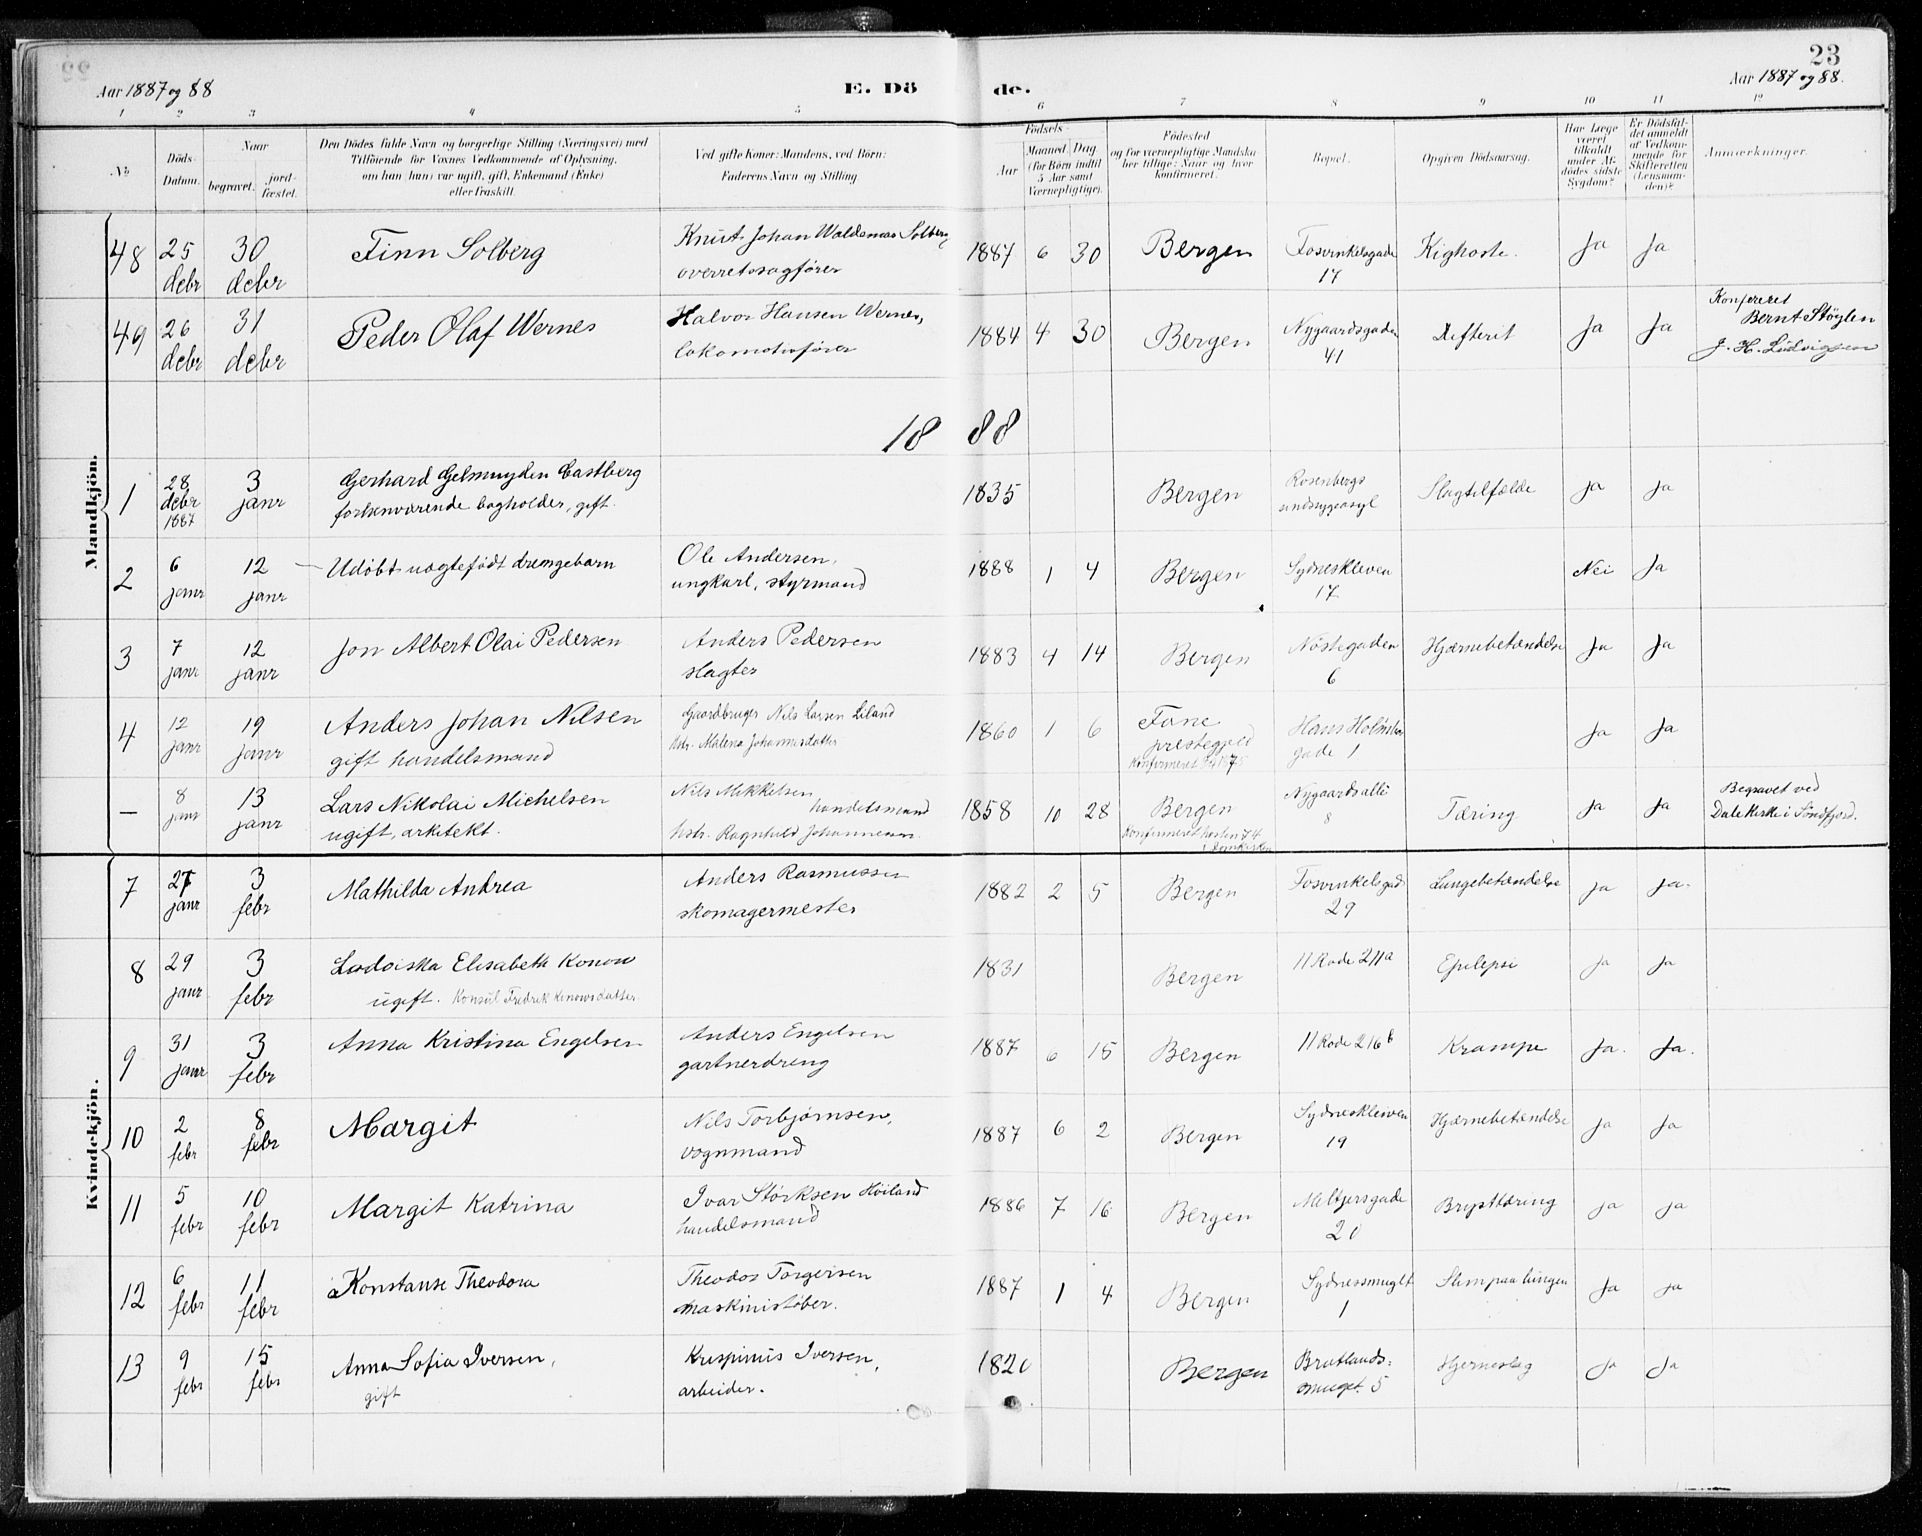 Aar 1887 og 88
E. Dö
de.
23
Aar 1887 og 88.
1 2 3 4 5 6 7 8 9 10 11 12
№
Döds-
Datum.
Naar
begravet.
jord-
fæstet.
Den Dödes fulde Navn og borgerlige Stilling (Næringsvei) med
Tilföiende for Voxnes Vedkommende af Oplysning,
om han (hun) var ugift, gift, Enkemand (Enke)
eller fraskilt.
Ved gifte Koner: Mandens, ved Börn:
Faderens Navn og Stilling
Födsels-
Aar
Maaned. Dag
(for Börn indtil
5 Aar samt
Værnepligtige).
Födested
og for værnepligtige Mandska-
ber tillige: Naar og hvor
konfirmeret.
Bopæl.
Opgiven Dödsaarsag.
Har Læge
været
tilkaldt
under Af-
dödes sidste
Sygdom?
Er Dödsfal-
det anmeldt
af Vedkom-
mende for
Skifteretten
(Lensman-
den)?
Anmærkninger.
Mandkjön.
48 25 debr 30 debr Finn Solberg Knut Johan Waldemar Solberg overretssagfører 1887 6 30 Bergen Fosvinkelsgade 17 Kighoste. Ja Ja
49 26 debr 31 debr Peder Olaf Wernes Halvor Hansen Wernes, lokomotivfører 1884 4 30 Bergen Nygaardsgaden 41 Difterit Ja Ja Konfereret Bernt Støylen J. H. Ludvigsen
1888
1 28 debr 1887 3 janr Gerhard Gelmuyden Castberg forhenværende bogholder, gift. 1835 Bergen Rosenbergs sindsygeasyl Slagtilfælde Ja Ja
2 6 janr 12 janr — Udøbt uægtefødt drengebarn Ole Andersen, ungkarl, styrmand 1888 1 4 Bergen Sydneskleven 17 Nei Ja
3 7 janr 12 janr Jon Albert Olai Pedersen Anders Pedersen slagter 1883 4 14 Bergen Nøstegaden 6 Hjærnebetændelse Ja Ja
4 12 janr 19 janr Anders Johan Nilsen gift handelsmand Gaardbruger Nils Larsen Liland hstr. Malena Johannesdatter 1860 1 6 Fane prestegjeld Konfirmeret Hans Holmboes gade 1 Ja Ja
— 8 janr 13 janr Lars Nikolai Michelsen ugift, arkitekt. Nils Mikkelsen handelsmand hstr. Ragnhild Johannesen 1858 10 28 Bergen Konfirmeret høsten 74 i Domkirken Nygaards allé 8 Tæring Ja Ja Begravet ved Dale kirke i Søndfjord.
Kvindekjön.
7 27 janr 3 febr Mathilda Andrea Anders Rasmussen skomagermester 1882 2 5 Bergen Fosvinkelsgade 29 Lungebetændelse Ja Ja.
8 29 janr 3 febr Lodoiska Elisabeth Konow ugift. Konsul Fredrik Konows datter 1831 Bergen 11 Rode 211a Epilepsi Ja Ja
9 31 janr 3 febr Anna Kristina Engelsen Anders Engelsen gartnerdreng 1887 6 15 Bergen 11 Rode 216 b Krampe Ja. Ja.
10 2 febr 8 febr Margit Nils Torbjørnsen, vognmand 1887 6 2 Bergen Sydneskleven 19 Hjærnebetændelse Ja Ja
11 5 febr 10 febr Margit Katrina Ivar Størksen Høiland handelsmand 1886 7 16 Bergen Meltzersgade 20 Brysttæring Ja Ja
12 6 febr 11 febr Konstanse Theodora Theodor Torgersen maskinistøber. 1887 1 4 Bergen Sydnessmuget 1 Slim paa lungen Ja Ja
13 9 febr 15 febr Anna Sofia Iversen, gift Krispinus Iversen, arbeider. 1820 Bergen Brutlands-smuget 5 Hjerneslag Ja Ja